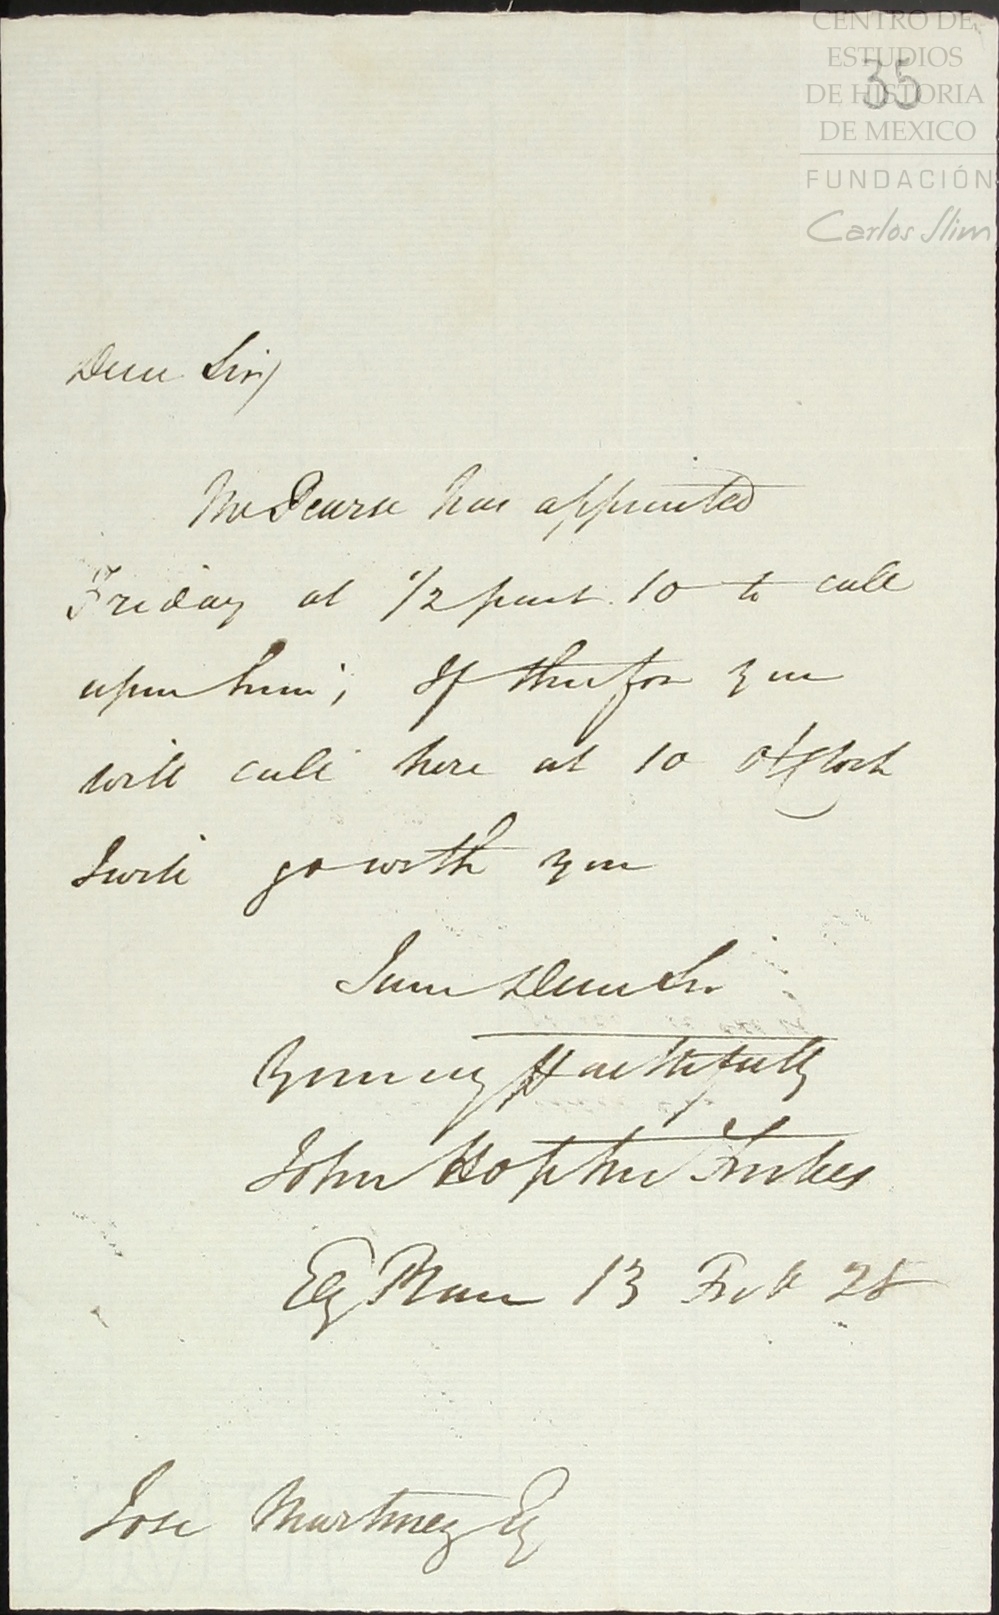 CENTRO DE
ESTUDIOS
DE HISTORIA
DE MEXICO
FUNDACIÓN
Carlos Slim
35
Dear Sir/
Mr Pearse has appointed
Friday at 1/2 past 10 to call
upon him; If therefore you
will call here at 10 o'Clock
I will go with you
I am Dear Sir
Yours very Faithfully
John Forbes
Ely Place 13 Feb 28
Jose Martinez Eq